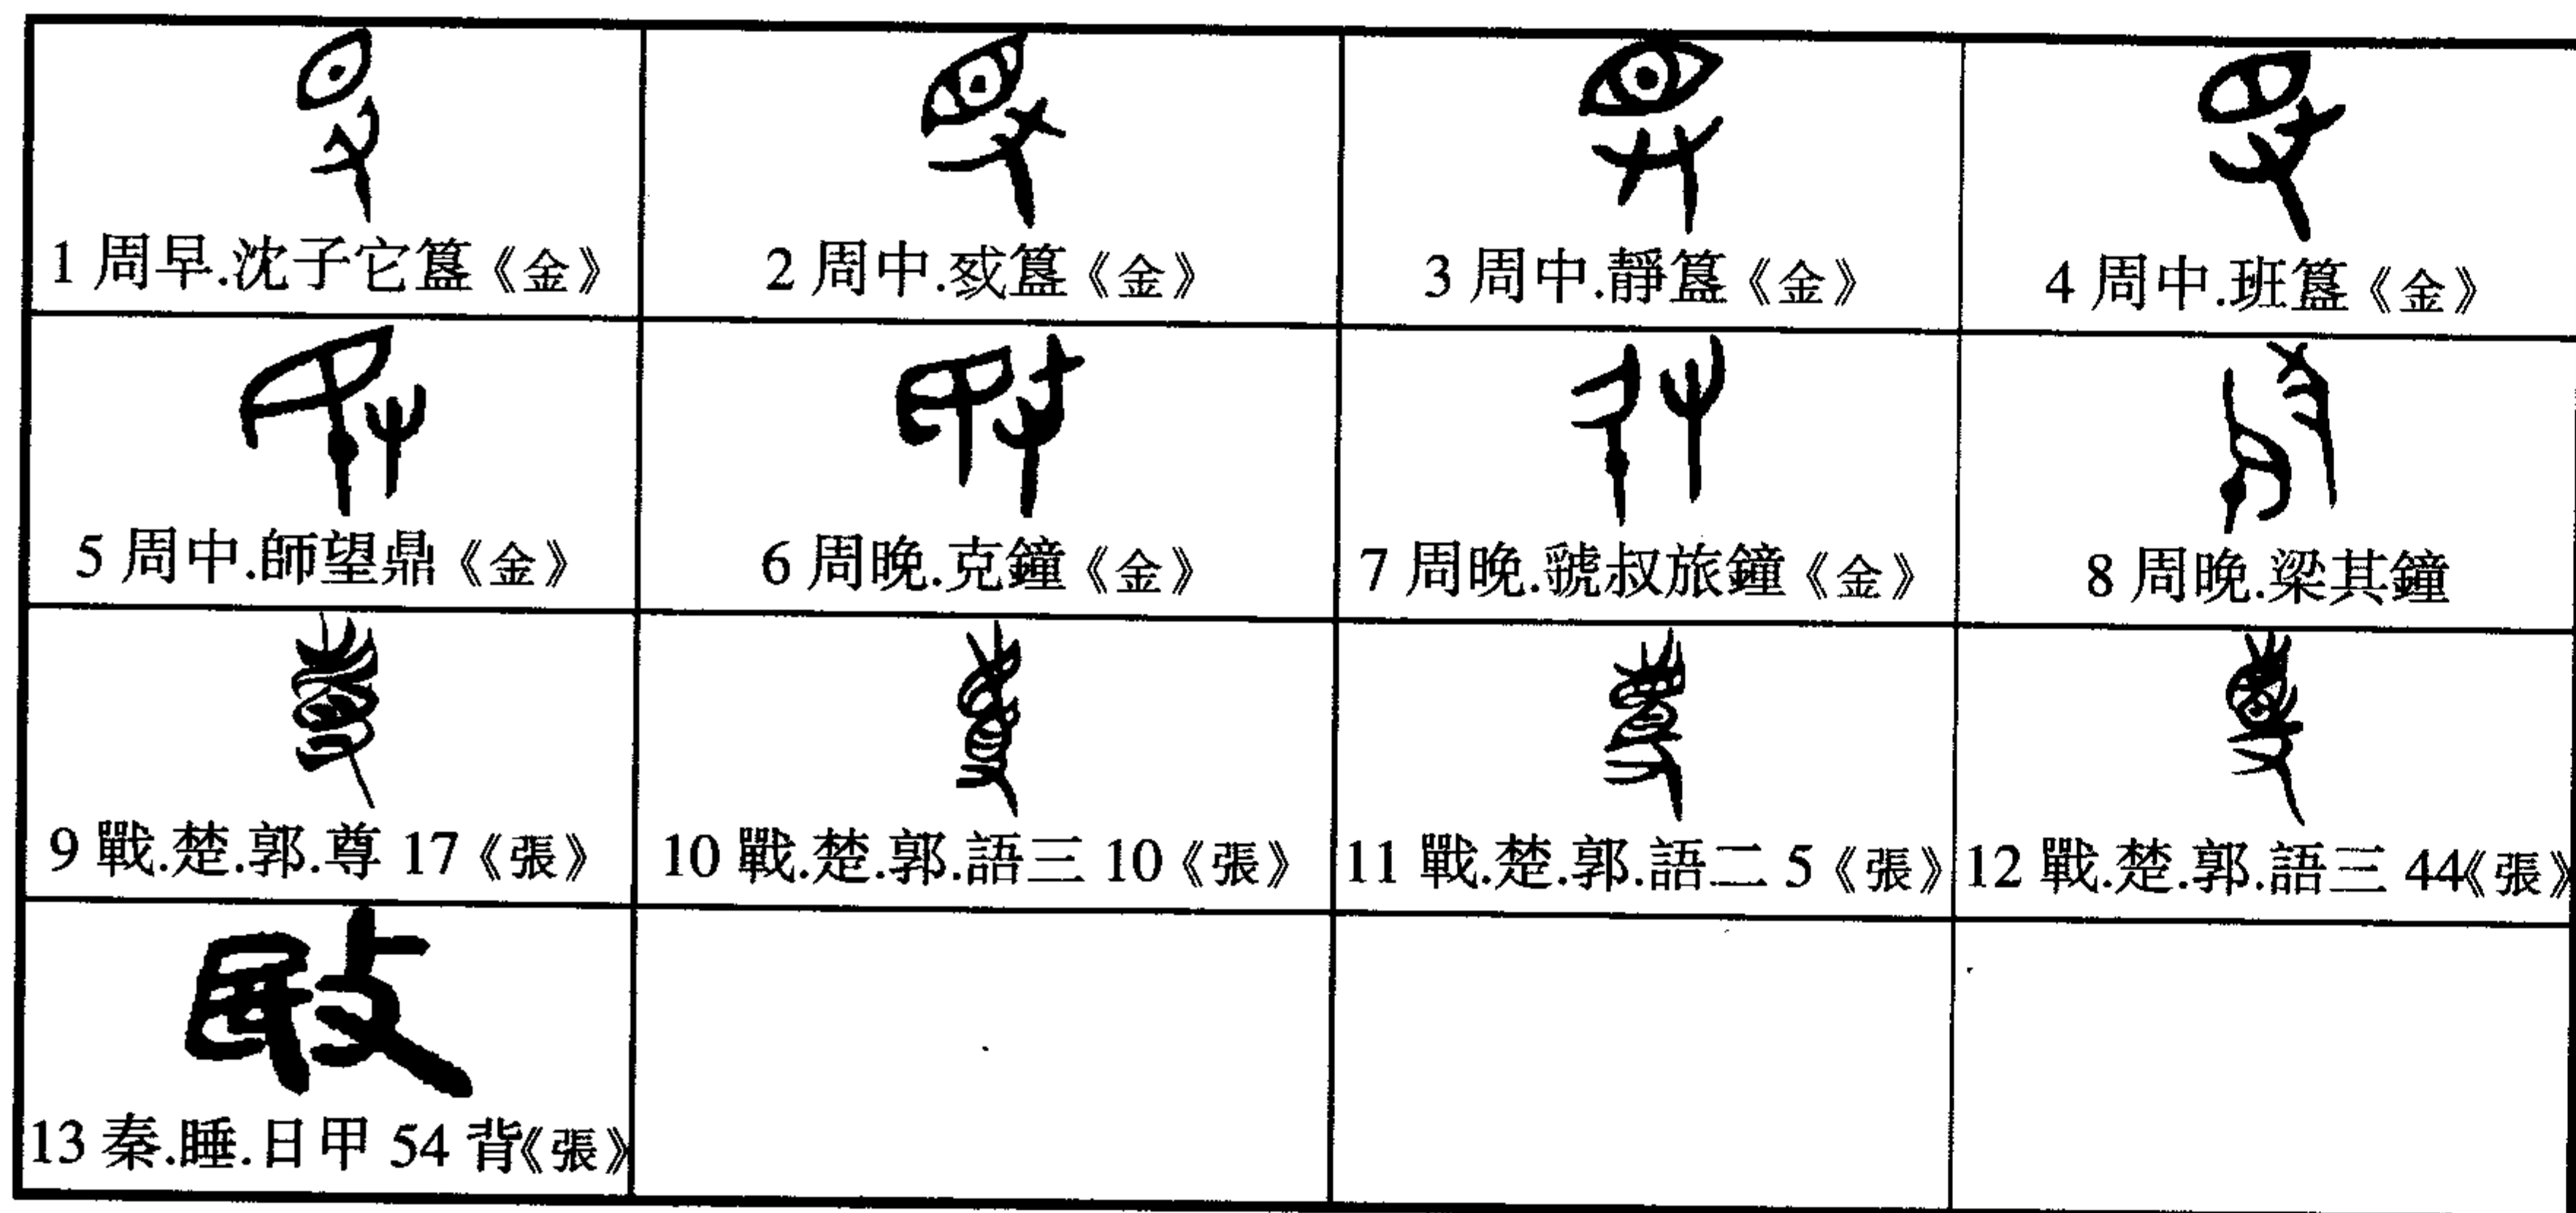 1 周早.沈子它簋《金》
2 周中.㺇簋《金》
3 周中.靜簋《金》
4 周中.班簋《金》
5 周中.師望鼎《金》
6 周晚.克鐘《金》
7 周晚.虢叔旅鐘《金》
8 周晚.梁其鐘
9 戰.楚.郭.尊 17《張》
10 戰.楚.郭.語三 10《張》
11 戰.楚.郭.語二 5《張》
12 戰.楚.郭.語三 44《張》
13 秦.睡.日甲 54 背《張》